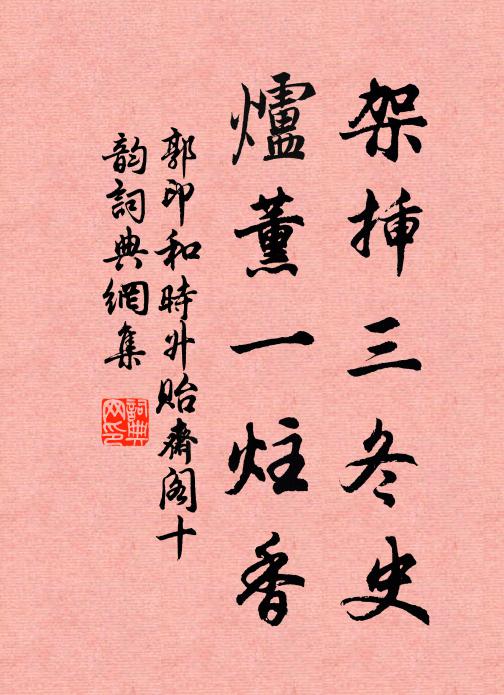 架揷三冬史
爐薰一炷香
郭印和時升貽齋閣十
韵詞典網集
詞典網印